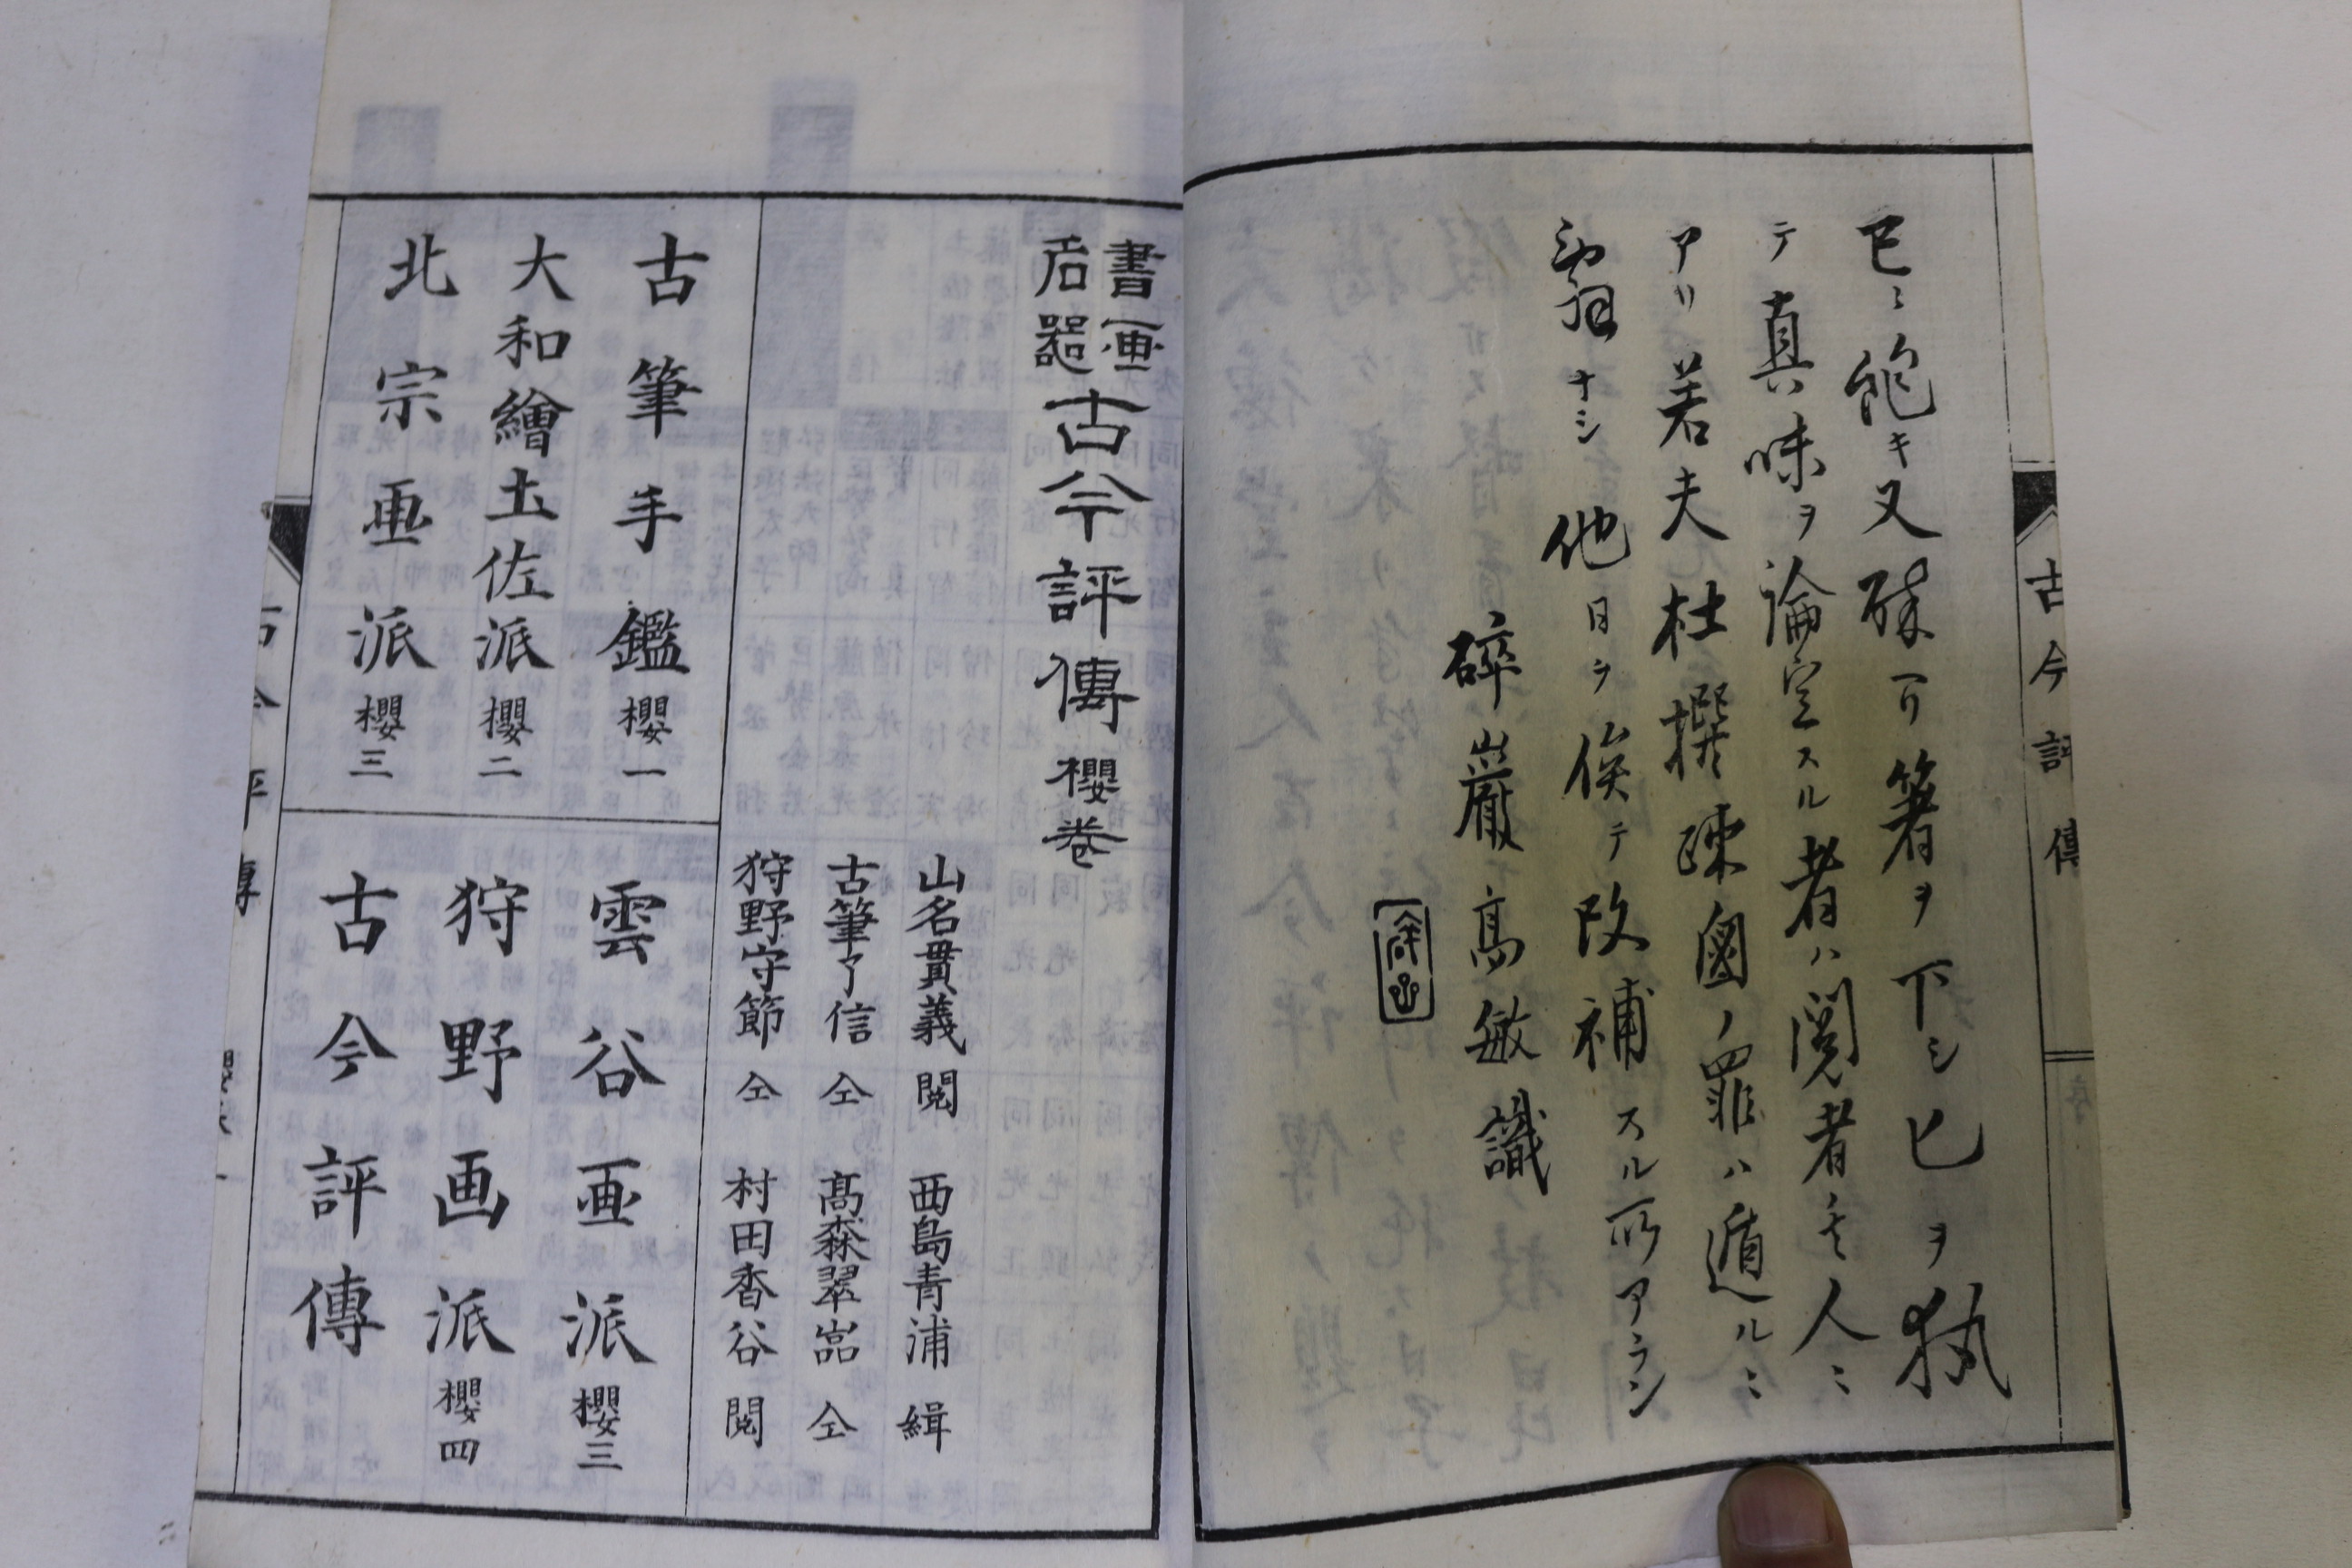 已ニ飽キ又殊ニ箸ヲ下シ已ヲ執
テ真味ヲ論定スル者ハ閲者ノ人ニ
アリ若夫杜撰疎鹵ノ罪ハ遁ルニ
ナシ他日ヲ俟テ改補スル所アラン
碎巖高敏識
古今評傳
序
書画
石器
古今評傳櫻卷
山名貫義閲 西島青浦緝
古筆了信仝 髙森翠嵓仝
狩野守節仝 村田香谷閲
古筆手鑑櫻一
大和繪土佐派櫻二
北宗画派櫻三
雲谷画派櫻三
狩野画派櫻四
古今評傳
古今評傳